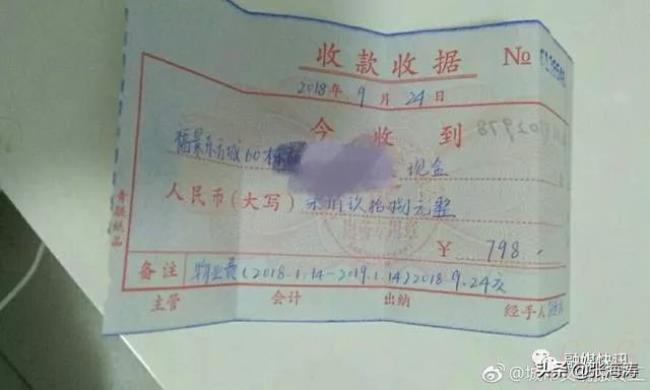 收款收据 №
2018年9月24日
今收到
福景东方城60栋 现金
人民币(大写) 柒佰玖拾捌元整
¥ 798.
备注 物业费(2018.1.14-2019.1.14)2018.9.24交
主管 会计 出纳 经手人
青联纸品
融媒快讯
头条@张海涛